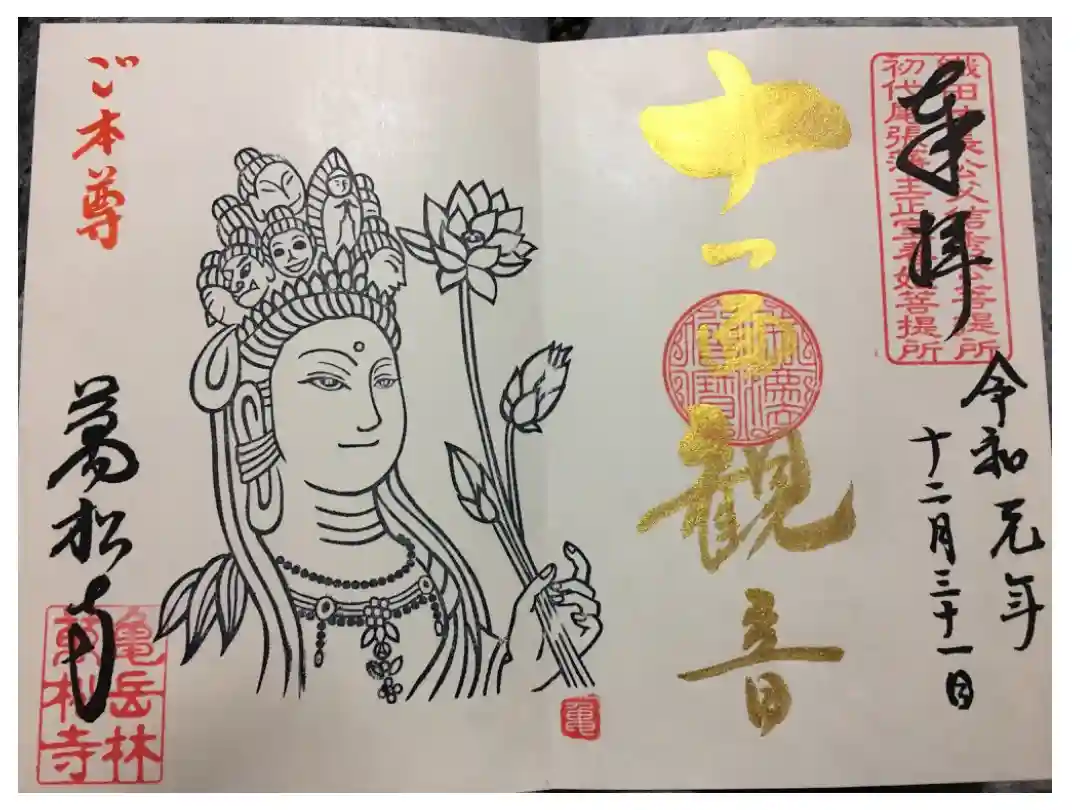 奉拝
織田信長公父信秀公菩提所
初代尾張藩主正室春姫菩提所
令和元年
十二月三十一日
十一面観音
ご本尊
萬松寺
亀岳林
萬松寺
亀